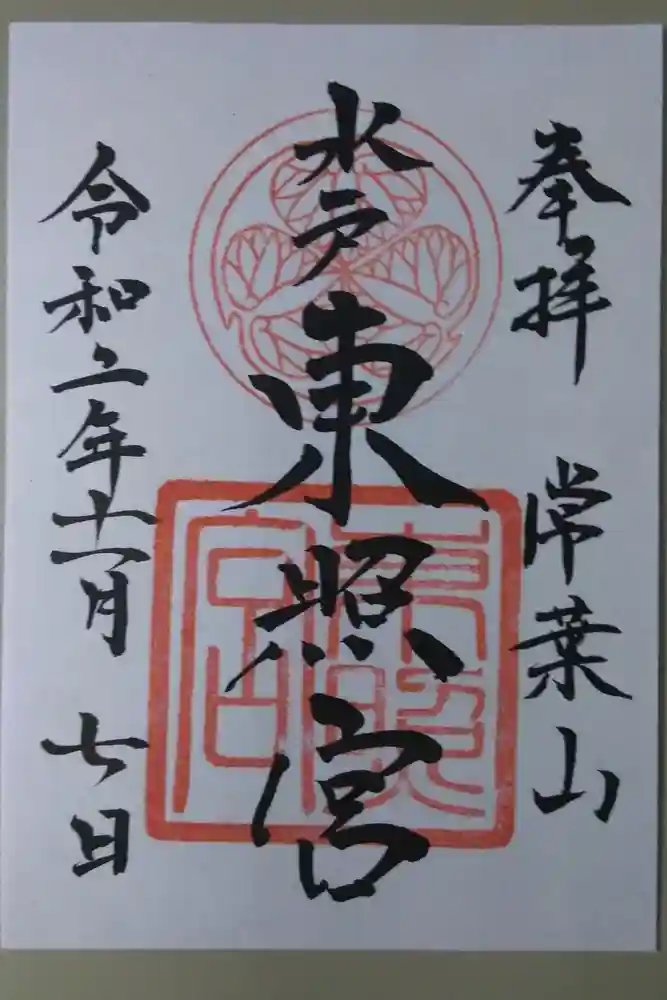 奉拝 常葉山
水戸東照宮
東照宮
令和二年十一月 七日